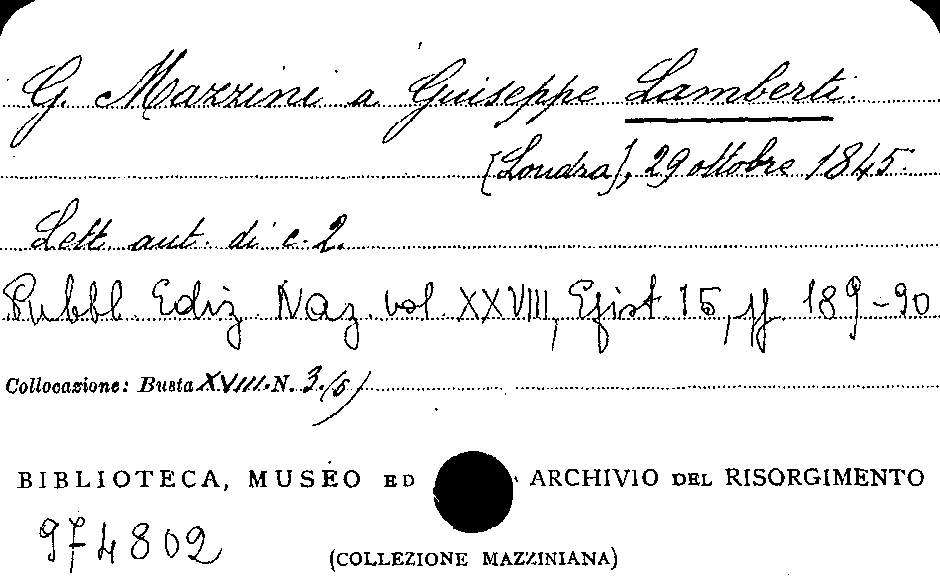 G. Mazzini a Giuseppe Lamberti.
[Londra], 29 ottobre 1845.
Lett. aut. di c. 2.
Pubbl. Ediz. Naz. vol. XXVIII, Epist. 15, pp 189-90
Collocazione: Busta XVIII. N. 3.(5)
BIBLIOTECA, MUSEO ED ARCHIVIO DEL RISORGIMENTO
974802
(COLLEZIONE MAZZINIANA)